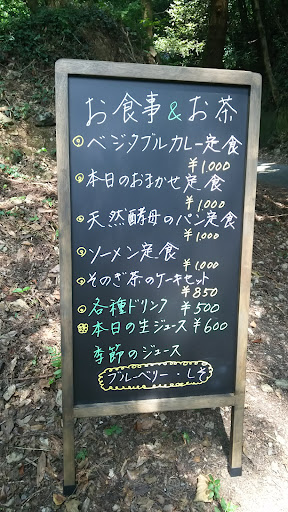 お食事&お茶
ベジタブルカレー定食
¥1,000
本日のおまかせ定食
¥1,000
天然酵母のパン定食
¥1,000
ソーメン定食
¥1,000
そのぎ茶のケーキセット
¥850
各種ドリンク ¥500
本日の生ジュース ¥600
季節のジュース
ブルーベリー・しそ